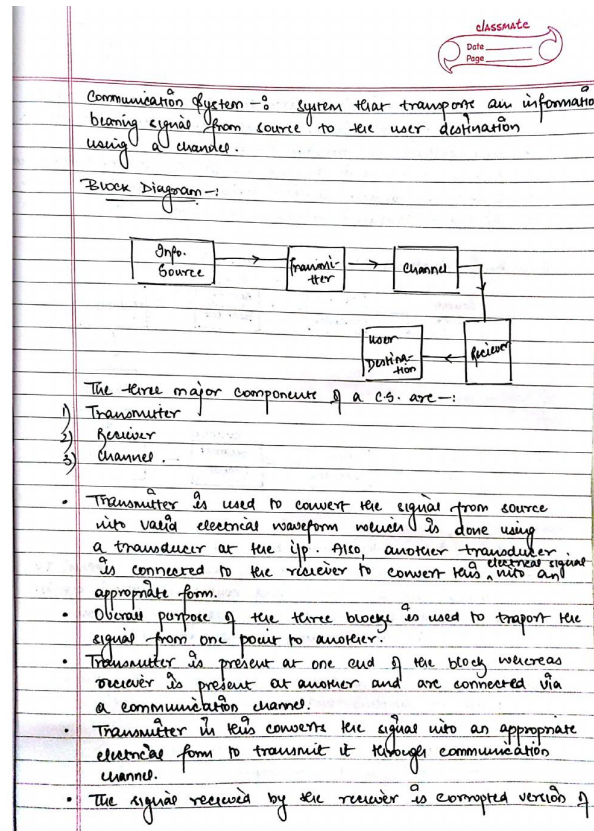 classmate
Date
Page
Communication System -: system that transports an informatio
bearing signal from source to the user destination
using a channel.
Block Diagram -:
Info.
Source
Transmi-
tter
Channel
User
Destina-
tion
Reciever
The three major components of a C.S. are -:
1) Transmitter
2) Reciever
3) Channel.
• Transmitter is used to convert the signal from source
into valid electrical waveform which is done using
a transducer at the i/p. Also, another transducer
is connected to the reciever to convert this electrical signal into an
appropriate form.
• Overall purpose of the three blocks is used to traport the
signal from one point to another.
• Transmitter is present at one end of the block whereas
reciever is present at another and are connected via
a communication channel.
• Transmitter in this converts the signal into an appropriate
electrical form to transmit it through communication
channel.
• The signal recieved by the reciever is corrupted version of